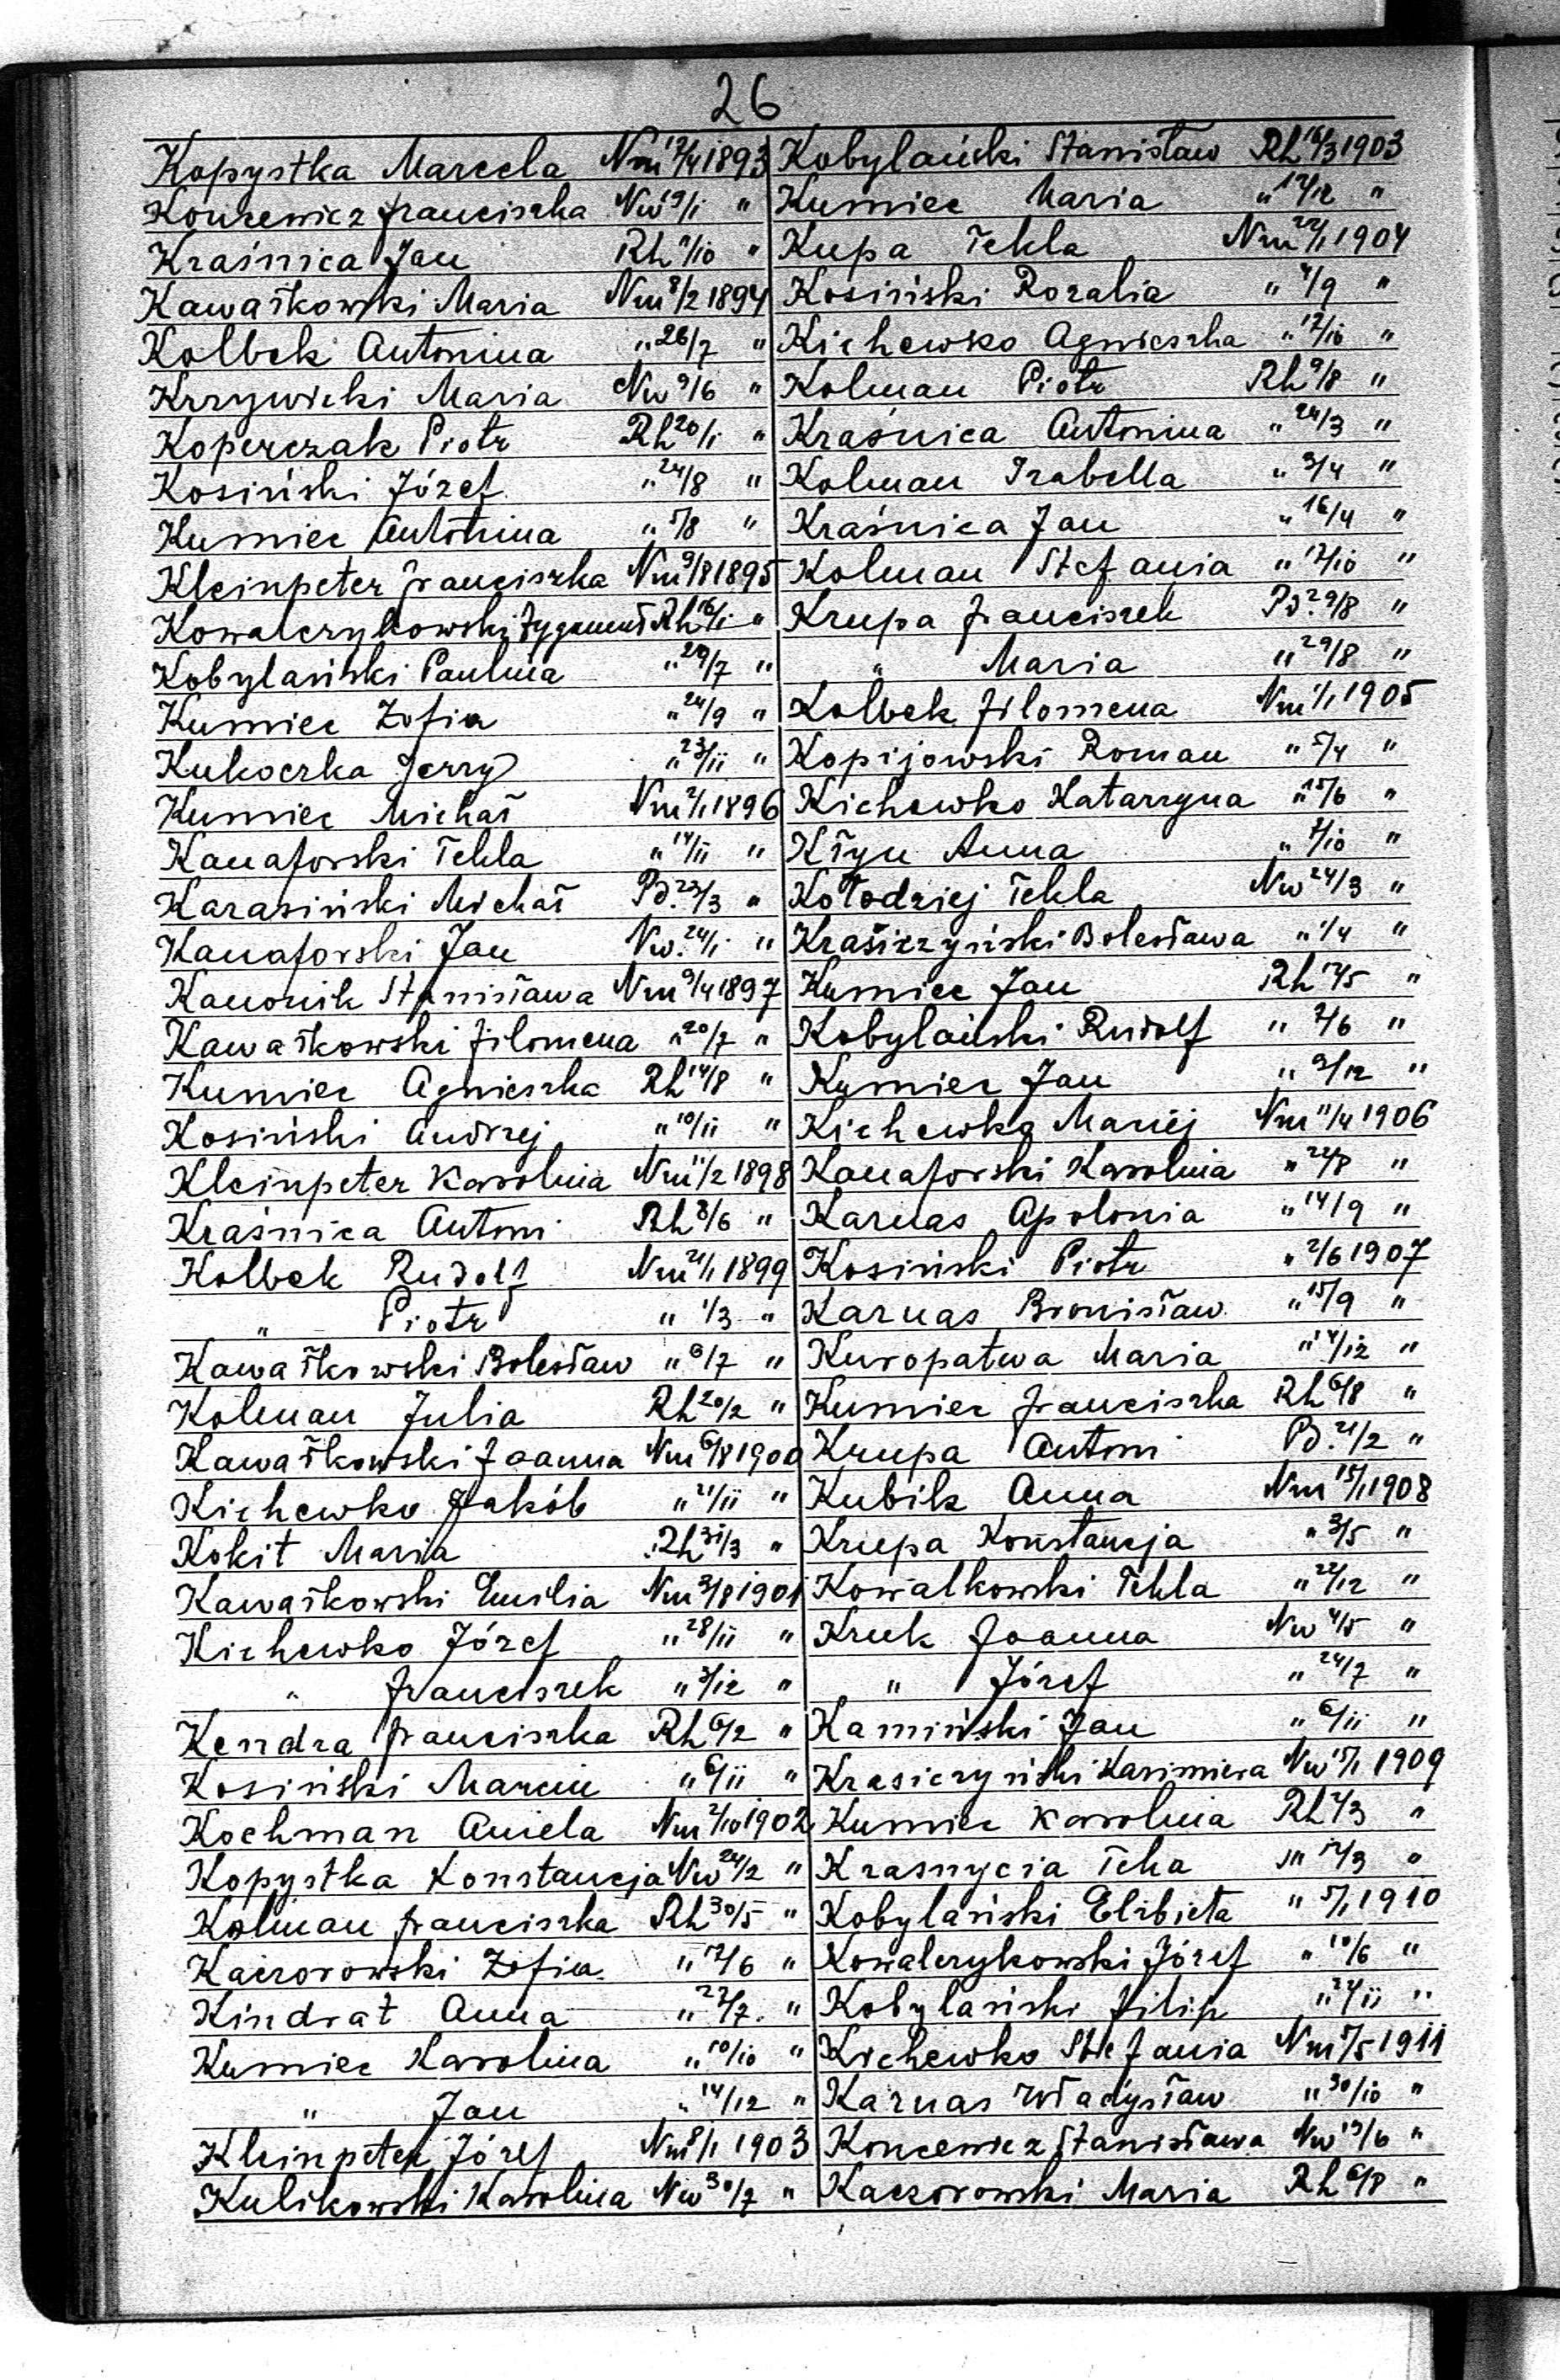 26
Kopystka Marcela Nm 12/4 1893
Koncewicz Franciszka Nw 19/1 "
Kraśnica Jan Rh 9/10 "
Kawałkowski Maria Nm 8/2 1894
Kolbek Antonina " 26/7 "
Krzywicki Maria Nw 9/6 "
Koperczak Piotr Rh 20/1 "
Kosiński Józef " 24/8 "
Kumiec Antonina " 5/8 "
Kleinpeter Franciszka Nm 9/8 1895
Kowalczykowski Zygmunt Rh 16/1 "
Kobylański Paulina " 29/7 "
Kumiec Zofia " 24/9 "
Kukoczka Jerzy " 23/11 "
Kumiec Michał Nm 2/1 1896
Kanaforski Tekla " 14/11 "
Karasiński Michał Pd. 23/3 "
Kanaforski Jan Nw. 24/1 "
Kanonik Stanisława Nm 9/4 1897
Kawałkowski Filomena " 20/7 "
Kumiec Agnieszka Rh 14/8 "
Kosiński Andrzej " 10/11 "
Kleinpeter Karolina Nm 11/2 1898
Kraśnica Antoni Rh 8/6 "
Kolbek Rudolf Nm 21/1 1899
" Piotr " 1/3 "
Kawałkowski Bolesław " 6/7 "
Kolman Julia Rh 20/2 "
Kawałkowski Joanna Nm 6/8 1900
Kichewko Jakób " 21/11 "
Kokit Maria Rh 31/3 "
Kawałkowski Emilia Nm 3/8 1901
Kichewko Józef " 28/11 "
" Franciszek " 3/12 "
Kendra Franciszka Rh 6/2 "
Kosiński Marcin " 6/11 "
Kochman Aniela Nm 2/10 1902
Kopystka Konstancja Nw 24/2 "
Kolman Franciszka Rh 30/5 "
Kaczorowski Zofia " 12/6 "
Kindrat Anna " 22/7. "
Kumiec Karolina " 10/10 "
" Jan " 14/12 "
Kleinpeter Józef Nm 8/1 1903
Kulikowski Karolina Nw 30/7 "
Kobylański Stanisław Rh 16/3 1903
Kumiec Maria " 12/12 "
Kupa Tekla Nm 22/1 1904
Kosiński Rozalia " 4/9 "
Kichewko Agnieszka " 12/10 "
Kolman Piotr Rh 9/8 "
Kraśnica Antonina " 24/3 "
Kolman Izabella " 3/4 "
Kraśnica Jan " 16/4 "
Kolman Stefania " 12/10 "
Krupa Franciszek Pd. 29/8 "
" Maria " 29/8 "
Kolbek Filomena Nm 1/1 1905
Kopijowski Roman " 5/4 "
Kichewko Katarzyna " 15/6 "
Kłyn Anna " 7/10 "
Kołodziej Tekla Nw 24/3 "
Krasiczyński Bolesława " 1/4 "
Kumiec Jan Rh 17/5 "
Kobylański Rudolf " 2/6 "
Kumiec Jan " 9/12 "
Kichewko Maciej Nm 11/4 1906
Kanaforski Karolina " 22/8 "
Karnas Apolonia " 14/9 "
Kosiński Piotr " 2/6 1907
Karnas Bronisław " 15/9 "
Kuropatwa Maria " 14/12 "
Kumiec Franciszka Rh 6/8 "
Krupa Antoni Pd. 21/2 "
Kubik Anna Nm 15/1 1908
Krupa Konstancja " 3/5 "
Kowalkowski Tekla " 22/12 "
Kruk Joanna Nw 4/5 "
" Józef " 24/7 "
Kamiński Jan " 6/11 "
Krasiczyński Kazimiera Nw 15/1 1909
Kumiec Karolina Rh 4/3 "
Krasnycia Teka " 12/3 "
Kobylański Elżbieta " 5/1 1910
Kowalczykowski Józef " 10/6 "
Kobylański Filip " 24/11 "
Kichewko Stefania Nm 7/5 1911
Karnas Władysław " 30/10 "
Koncewicz Stanisława Nw 19/6 "
Kaczorowski Maria Rh 6/8 "